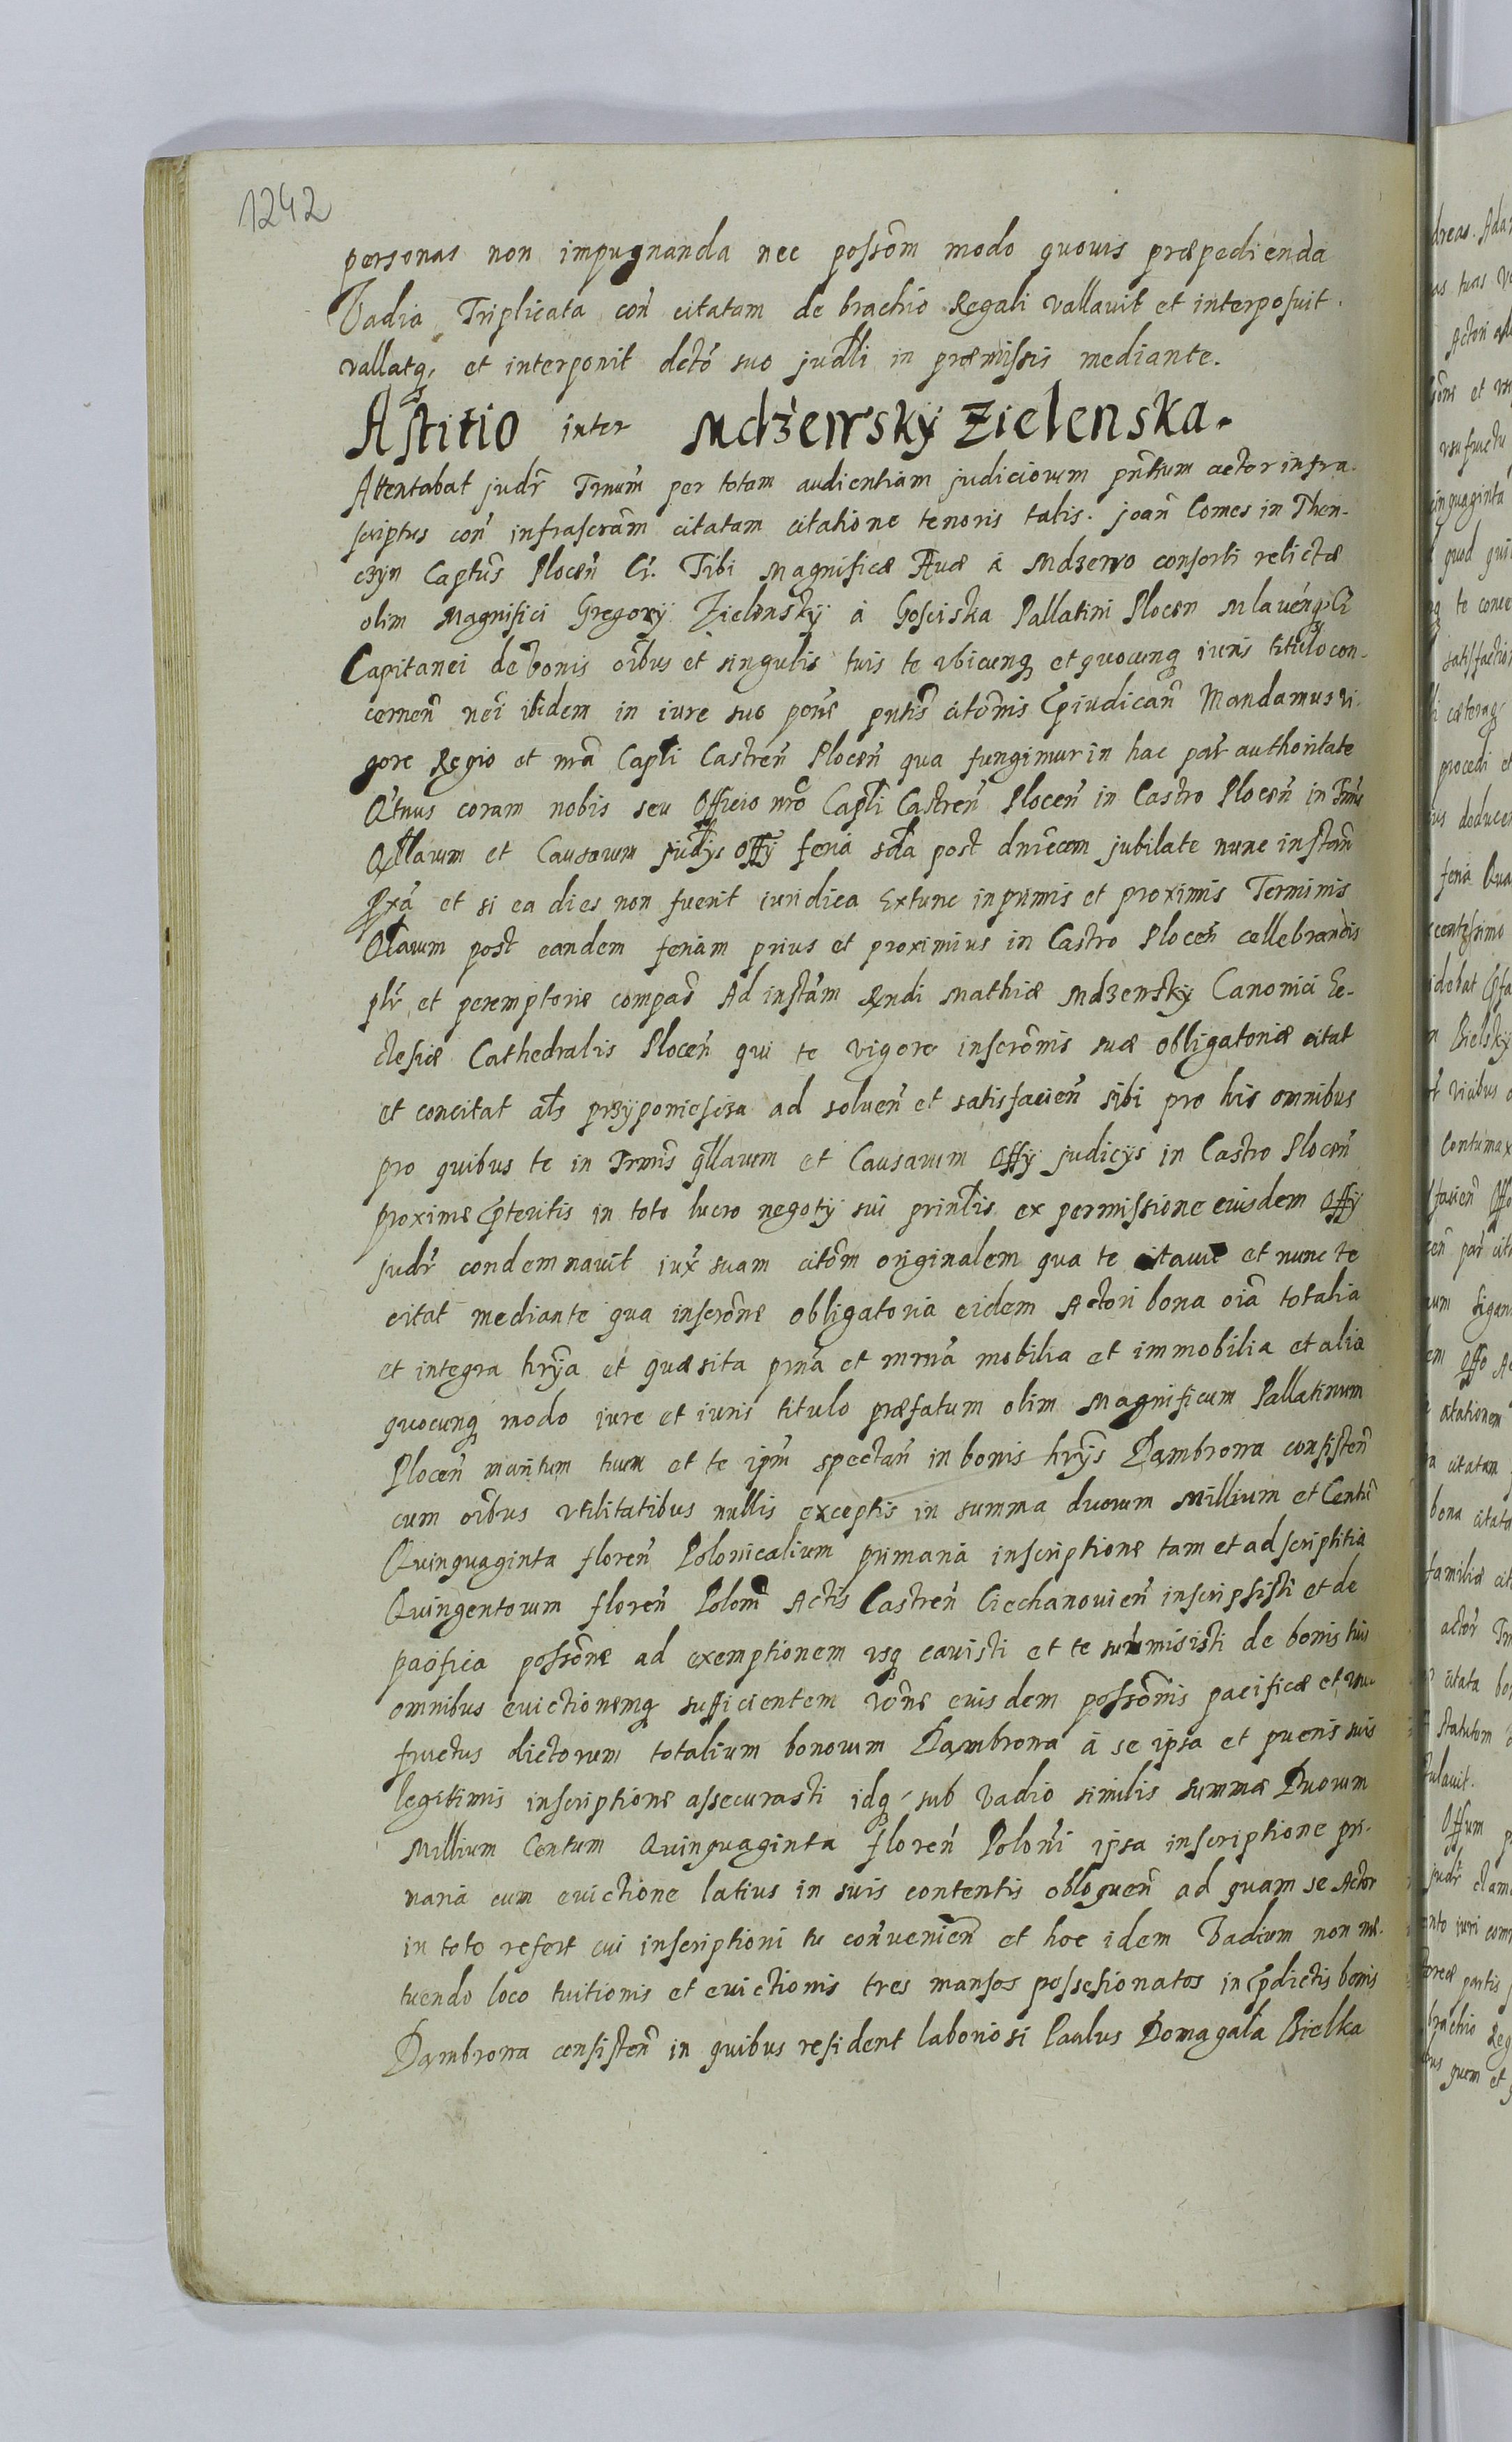 1242
personas non impugnanda nec possom̃ modo quouis præpedienda
Vadia Triplicata coñ citatam de brachio Regali vallavit et interposuit.
vallatq, et interponit dctõ suo judłi in præmissis mediante.
Astitio inter Mdzewsky Zielenska.
Attentabat judr̃ Trnum̃ per totam audientiam judiciorum pñtium actor infra-
scriptus coñ infrascram̃ citatam citatione tenoris talis. Joañ Comes in Then-
czyn Captus̃ Plocen̄ Cĩ. Tibi Magnificæ Æuæ á Mdzewo consorti relictæ
olim Magnifici Gregory Zielensky á Gosciska Pallatini Plocen Mlauenq;
Capitanei de bonis oĩbus et singulis tuis te vbicunq et quocunq iuris titulo con-
cerneñ neĩ ibidem in iure suo poñe pntis̃ citõnis p̃iudicañ Mandamus vi-
gore Regio et nrã Capłi Castreñ Plocen̄ qua fungimur in hac par̃ authoritate
Qtnus coram nobis seu Officio nrõ Capłi Castreñ Plocen̄ in Castro Plocen̄ in Trnis̃
Qłlarum et Causarum judijs Offy feria sda post dnĩcam jubilate nunc instañ
et si ea dies non fuerit iuridica Extunc inprimis et proximis Terminis
Qłlarum post eandem feriam prius et proximius in Castro Plocen̄ cellebrandis
plr̃ et peremptorie compaš Ad instam̃ Rndi Mathiæ Mdzensky Canonici Ec-
clesiæ Cathedralis Plocen̄ qui te vigore inscrõnis suæ obligatoriæ citat
et concitat als̃ przyponiescza ad solueñ et satisfacieñ sibi pro his omnibus
pro quibus te in Trmis̃ qłlarum et Causarum Offy judicijs in Castro Plocen̄
proxime p̃teritis in toto lucro negoty sui prinłis ex permissione eiusdem Offy
judr̃ condemnauit iux̃ suam citõm originalem qua te citauit et nunc te
citat mediante qua inscrõne obligatoria eidem Actori bona oĩa totalia
et integra hrỹa et quæsita prnã et mrnã mobilia et immobilia et alia
quocunq modo iure et iuris titulo præfatum olim Magnificum Pallatinum
Plocen̄ maritum tuum et te ipm̃ spectañ in bonis hrỹs Dambrowa consisteñ
cum oĩbus vtilitatibus nullis exceptis in summa duorum Millium et Centũ
Quinquaginta floreñ Polonicalium primaria inscriptione tam et adscriptitia
Quingentorum floreñ Poloni Actis Castreñ Ciechanouieñ inscripsisti et de
pacifica possõne ad exemptionem vsq cauisti et te submisisti de bonis tuis
omnibus euictionemq sufficientem rõne euisdem possõnis pacificæ et vsu
fructus dictorum totalium bonorum Dambrowa á se ipsa et pueris suis
legitimis inscriptione assecurasti idq sub Vadio similis summæ Duorum
Millium Centum Quinquaginta floreñ Poloni ipsa inscriptione pri-
maria cum euictione latius in suis contentis obloqueñ ad quam se Actor
in toto refert cui inscriptioni tu conuenieñ et hoc idem Vadium non me-
tuendo loco tuitionis et euictionis tres mansos possesionatos in p̃dictis bonis
Dambrowa consisteñ in quibus resident laboriosi Paulus Domagala Bielka